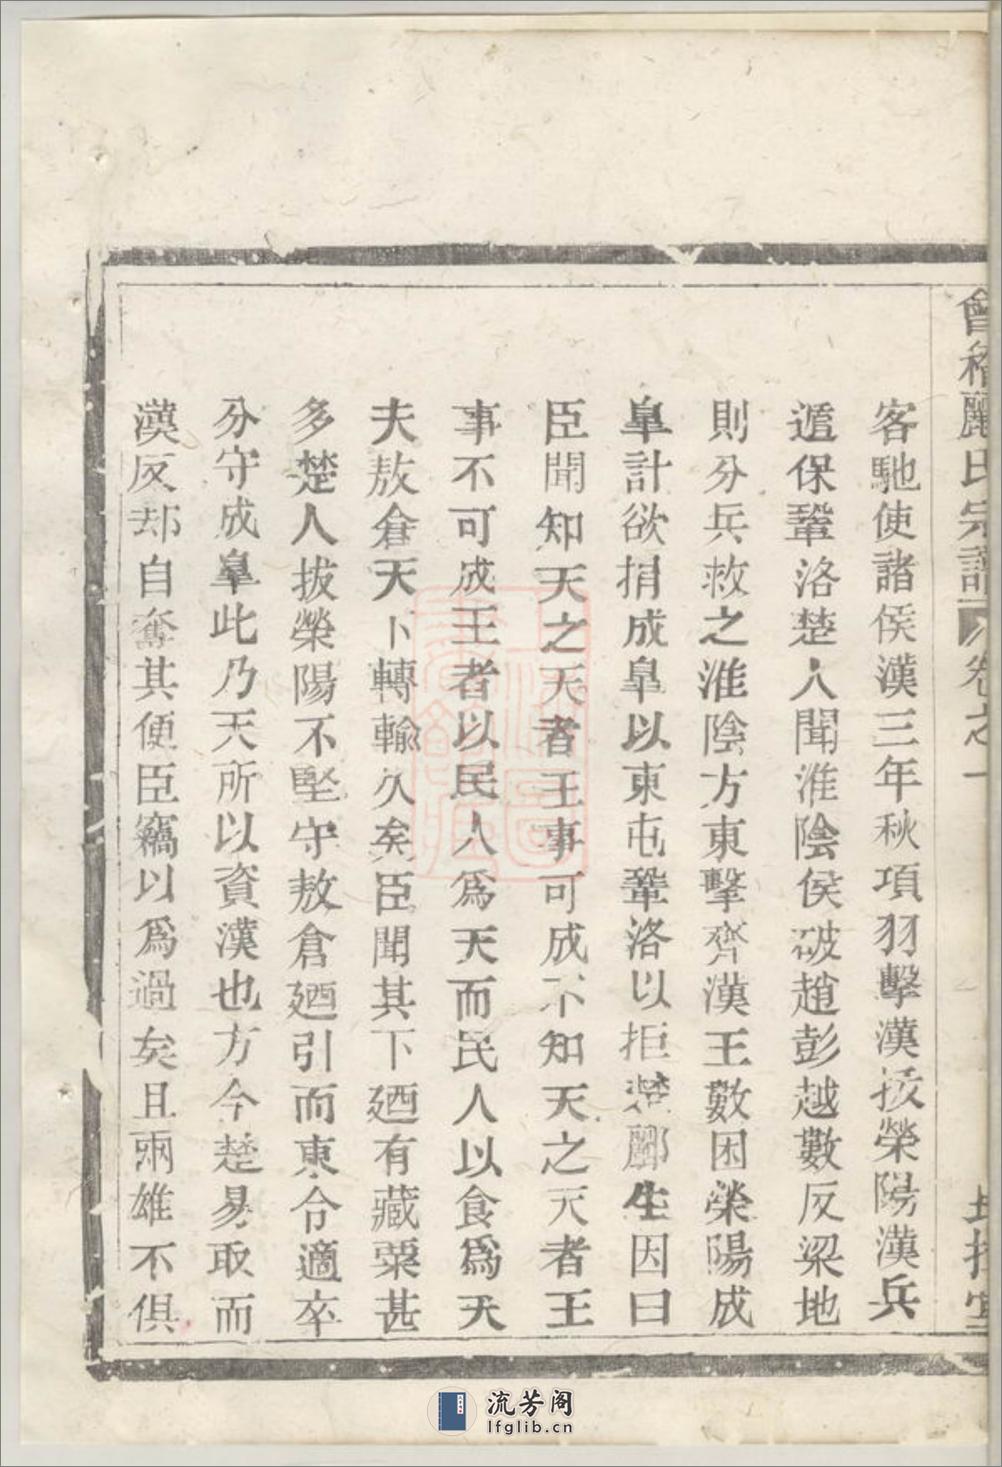 會稽酈氏宗譜 卷之一
客馳使諸侯漢三年秋項羽擊漢拔榮陽漢兵
遁保鞏洛楚人聞淮陰侯破趙彭越數反梁地
則分兵救之淮陰方東擊齊漢王數困榮陽成
皐計欲捐成皐以東屯鞏洛以拒楚酈生因曰
臣聞知天之天者王事可成不知天之天者王
事不可成王者以民人爲天而民人以食爲天
夫敖倉天下轉輸久矣臣聞其下廼有藏粟甚
多楚人拔榮陽不堅守敖倉廼引而東令適卒
分守成皐此乃天所以資漢也方今楚易取而
漢反却自奪其便臣竊以爲過矣且兩雄不俱
流芳阁
lfglib.cn